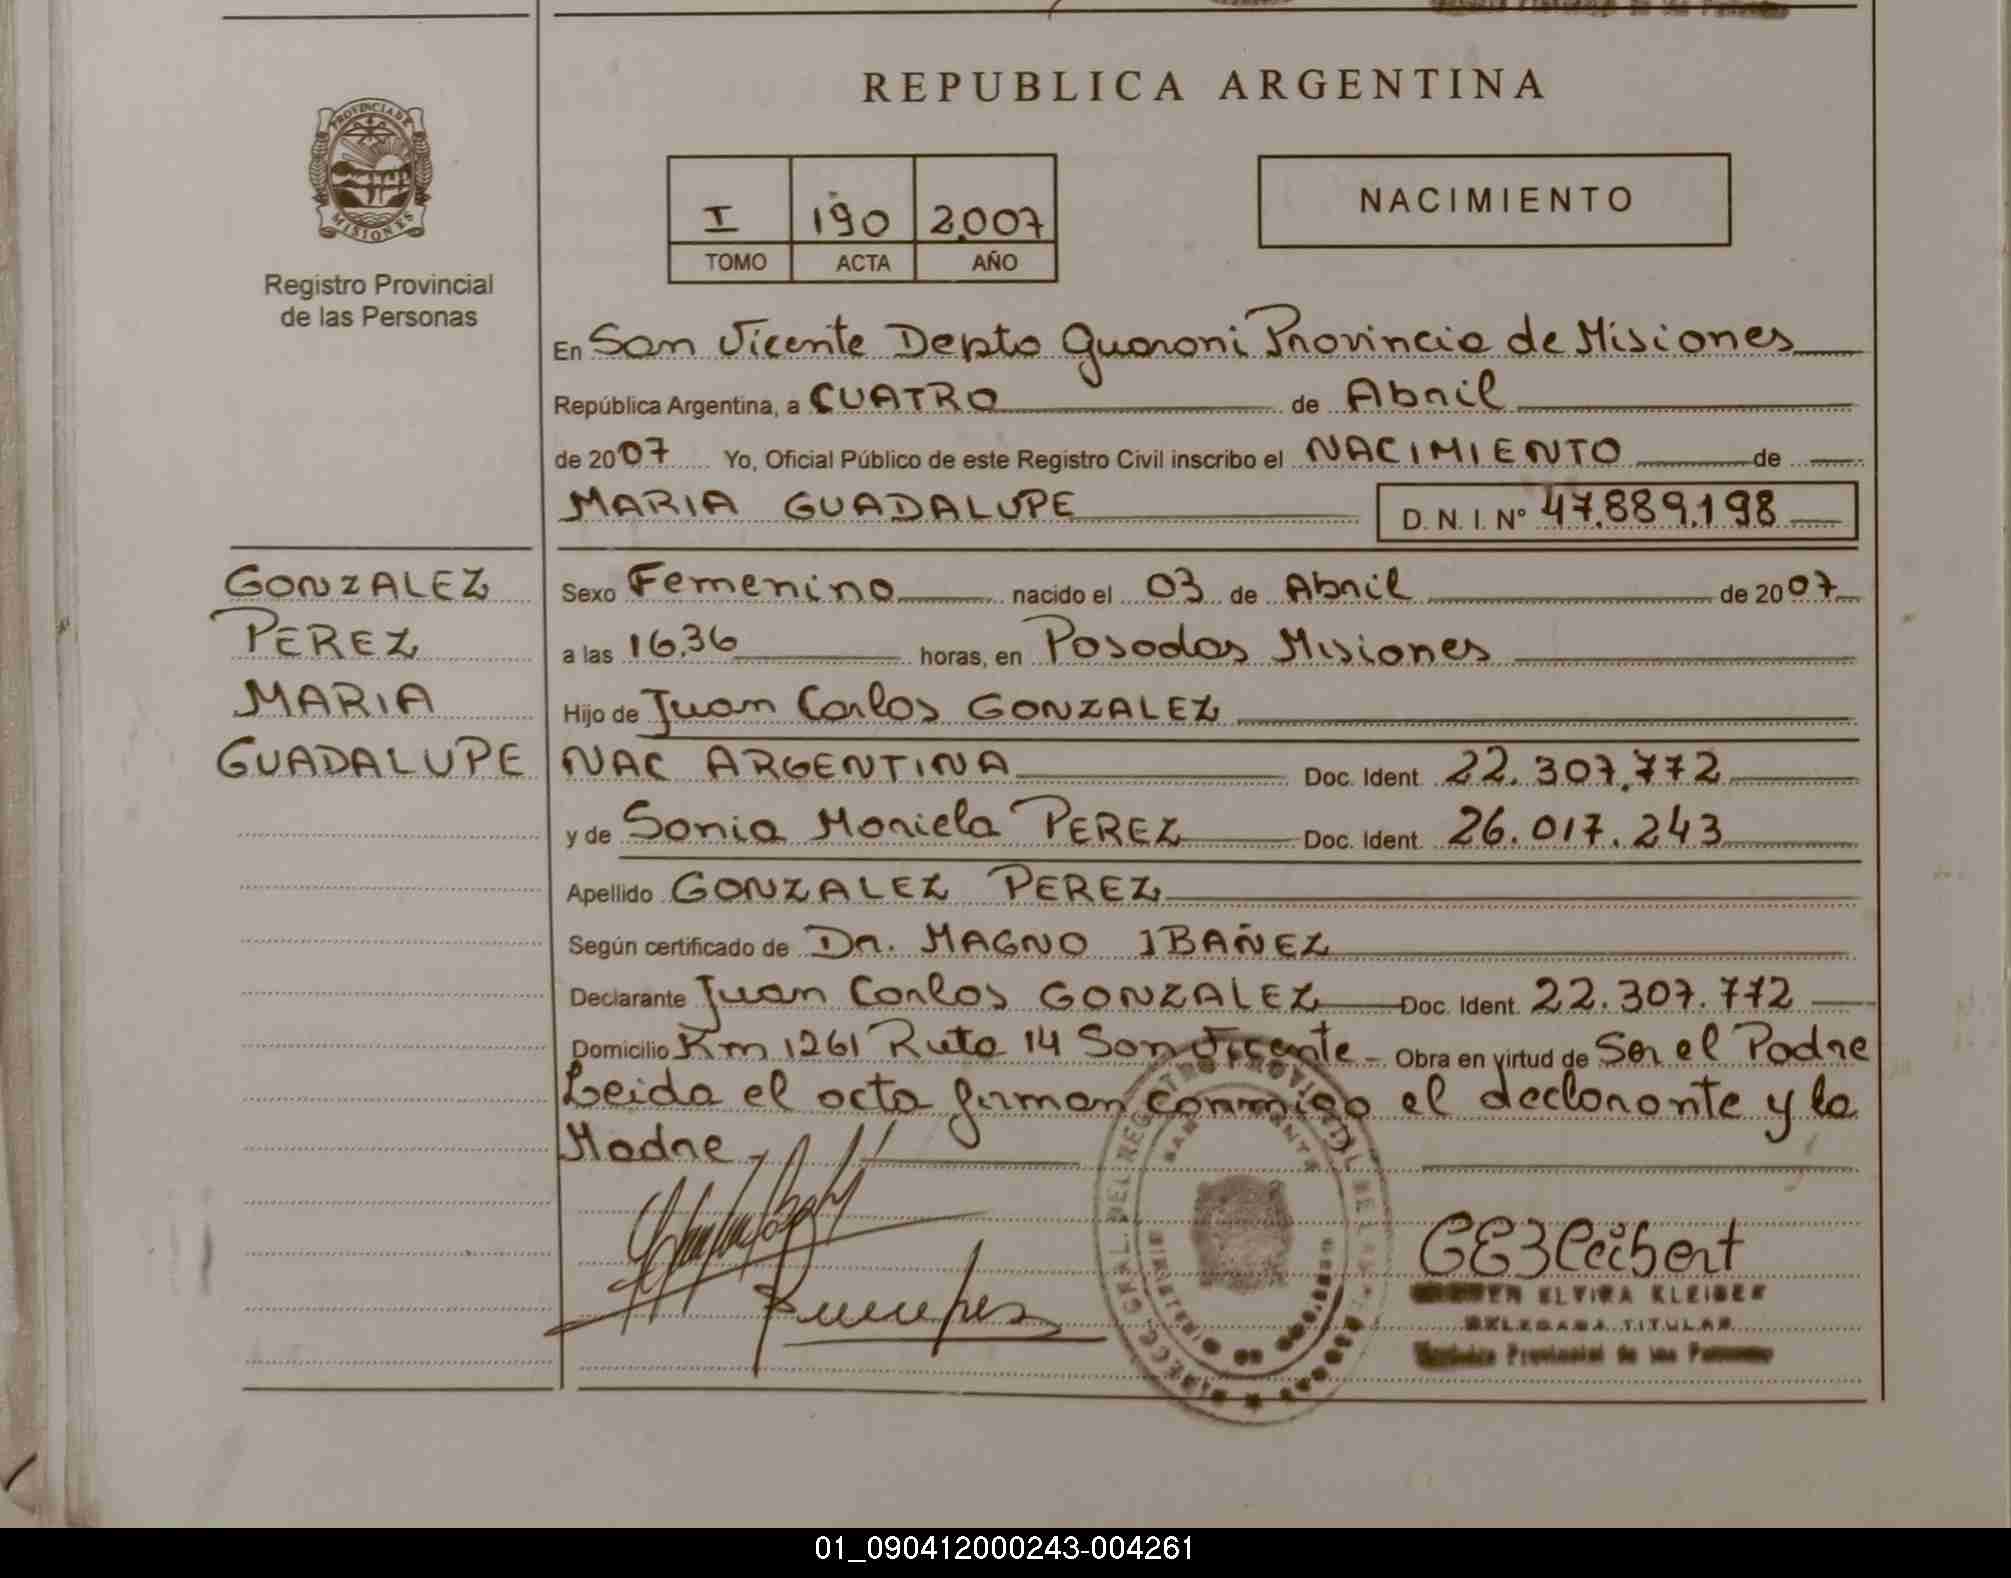 REPUBLICA ARGENTINA
PROVINCIA DE MISIONES
Registro Provincial
de las Personas
I 190 2.007
TOMO ACTA AÑO
NACIMIENTO
En San Vicente Depto Guarani Provincia de Misiones
República Argentina, a CUATRO de Abril
de 2007 Yo, Oficial Público de este Registro Civil inscribo el NACIMIENTO de
MARIA GUADALUPE D. N. I. Nº 47.889.198
GONZALEZ
PEREZ
MARIA
GUADALUPE
Sexo Femenino nacido el 03 de Abril de 2007
a las 16,36 horas, en Posadas Misiones
Hijo de Juan Carlos GONZALEZ
NAC ARGENTINA Doc. Ident. 22.307.772
y de Sonia Mariela PEREZ Doc. Ident. 26.017.243
Apellido GONZALEZ PEREZ
Según certificado de Dr. MAGNO IBAÑEZ
Declarante Juan Carlos GONZALEZ Doc. Ident. 22.307.772
Domicilio Km 1261 Ruta 14 San Vicente - Obra en virtud de Ser el Padre
Leida el acta firman conmigo el declarante y la
Madre
ELVIRA KLEIBER
DELEGADA TITULAR
Provincial de las Personas
01_090412000243-004261